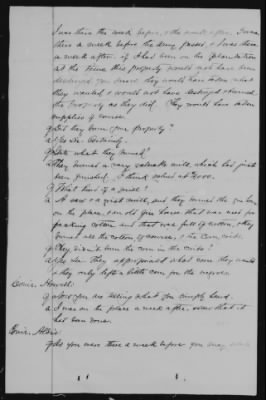 I was there the week before, & the week after. I was
there a week before the army passed, & I was there
a week after. If I had been on the plantation
at the time this property would not have been
destroyed you know they would have taken what
they wanted & would not have destroyed
the property as they did. They would have taken
supplies of course.
Q Did they burn your property?
A Yes Sir. Certainly.
Q State what they burned?
A They burned a very valuable mill, which had just
been finished. I think valued at
Q What kind of a mill?
A A saw & a grist mill, and they burned the gin house
on the place, an old gin house that was used for
packing cotton and that was full of cotton, they
burned all the cotton of course, & the corn cribs.
Q They didn't burn the corn in the cribs?
A No Sir. They appropriated what corn they wanted
& they only left a little corn for the negroes.
Comr. Howell:
Q Are you are telling what you simply heard.
A I was on the place a week after, & saw that it
had been done.
Comr. Aldis:
Q As you were there a week before you may